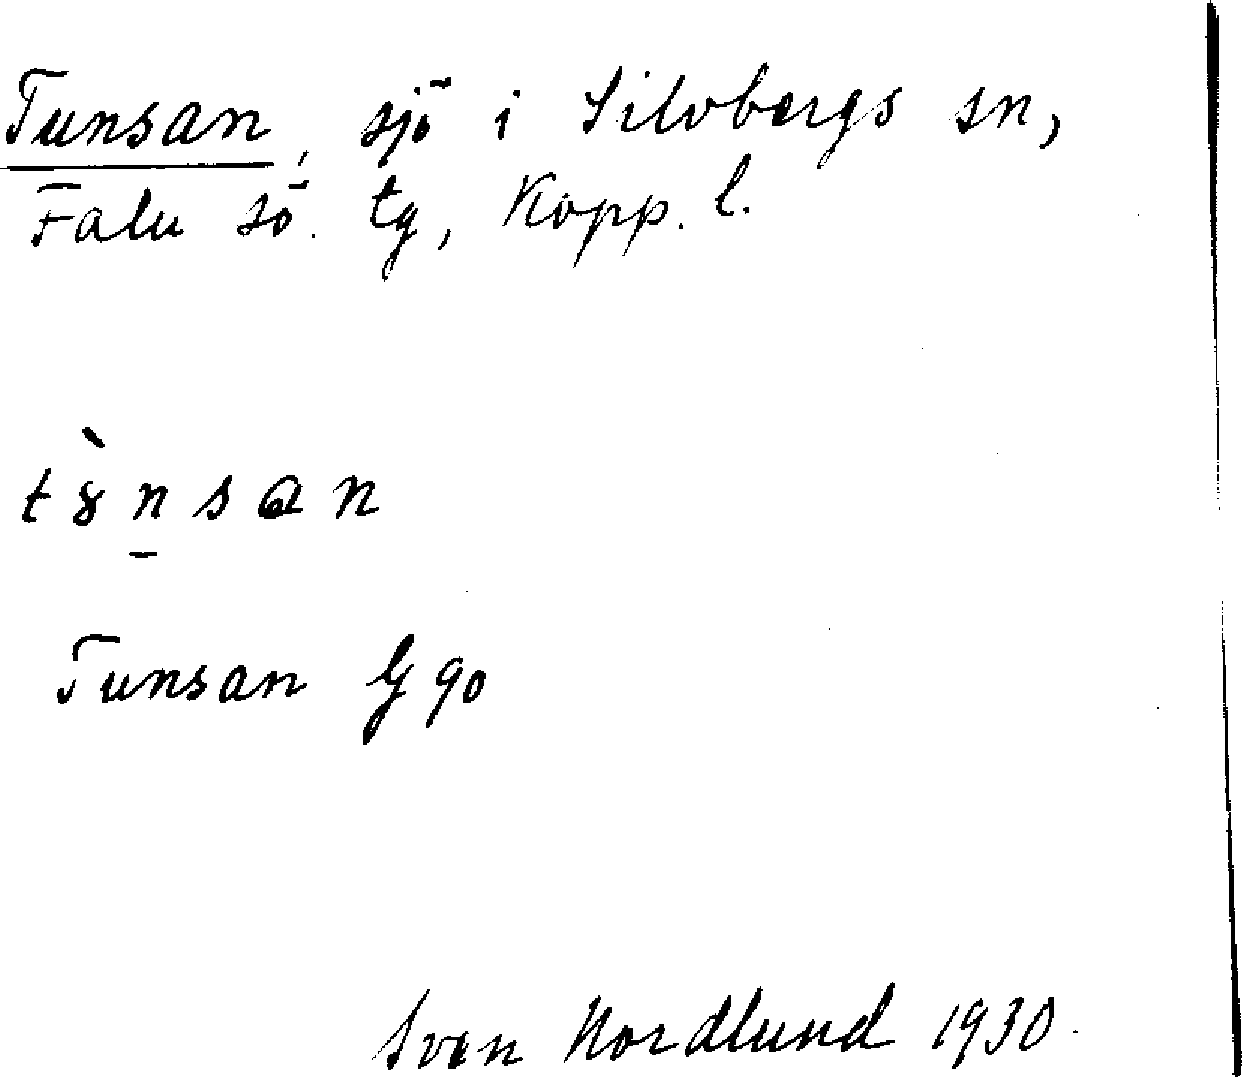 Tunsan, sjö i Silvbergs sn,
Falu sö. tg, Kopp. l.
Tunsan G 90
Sven Nordlund 1930.